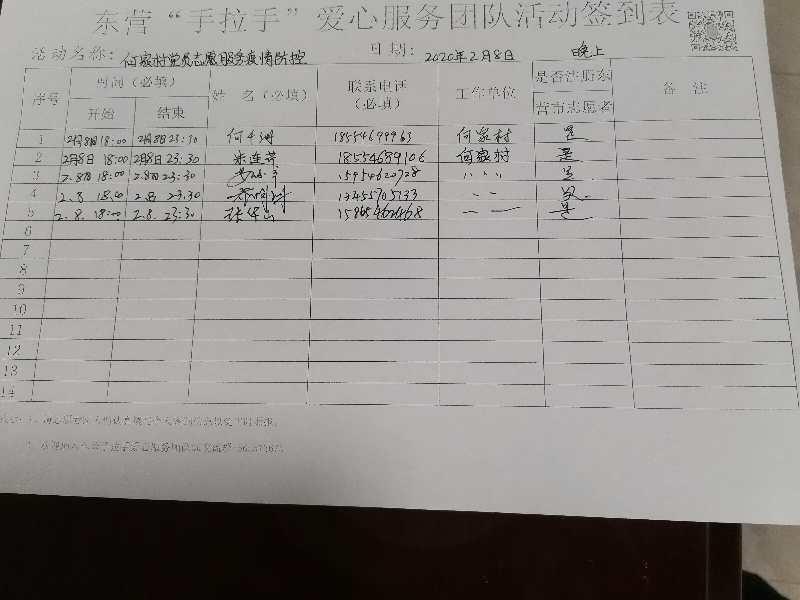 东营“手拉手”爱心服务团队活动签到表
活动名称：何家村党员志愿服务疫情防控 日期：2020年2月8日 晚上
序号 时间（必填） 姓 名（必填） 联系电话（必填） 工作单位 是否注册东营市志愿者 备 注
开始 结束
1 2月8日 18:00 2月8日 23:30 18554699963 何家村 是
2 2月8日 18:00 2月8日 23:30 18554689106 何家村 是
3 2.8日 18:00 2.8日 23:30 15954620728 〃 是
4 2.8 18:00 2.8 23.30 13455705133 〃 是
5 2.8. 18:00 2.8. 23:30 是
6
7
8
9
10
11
12
13
14